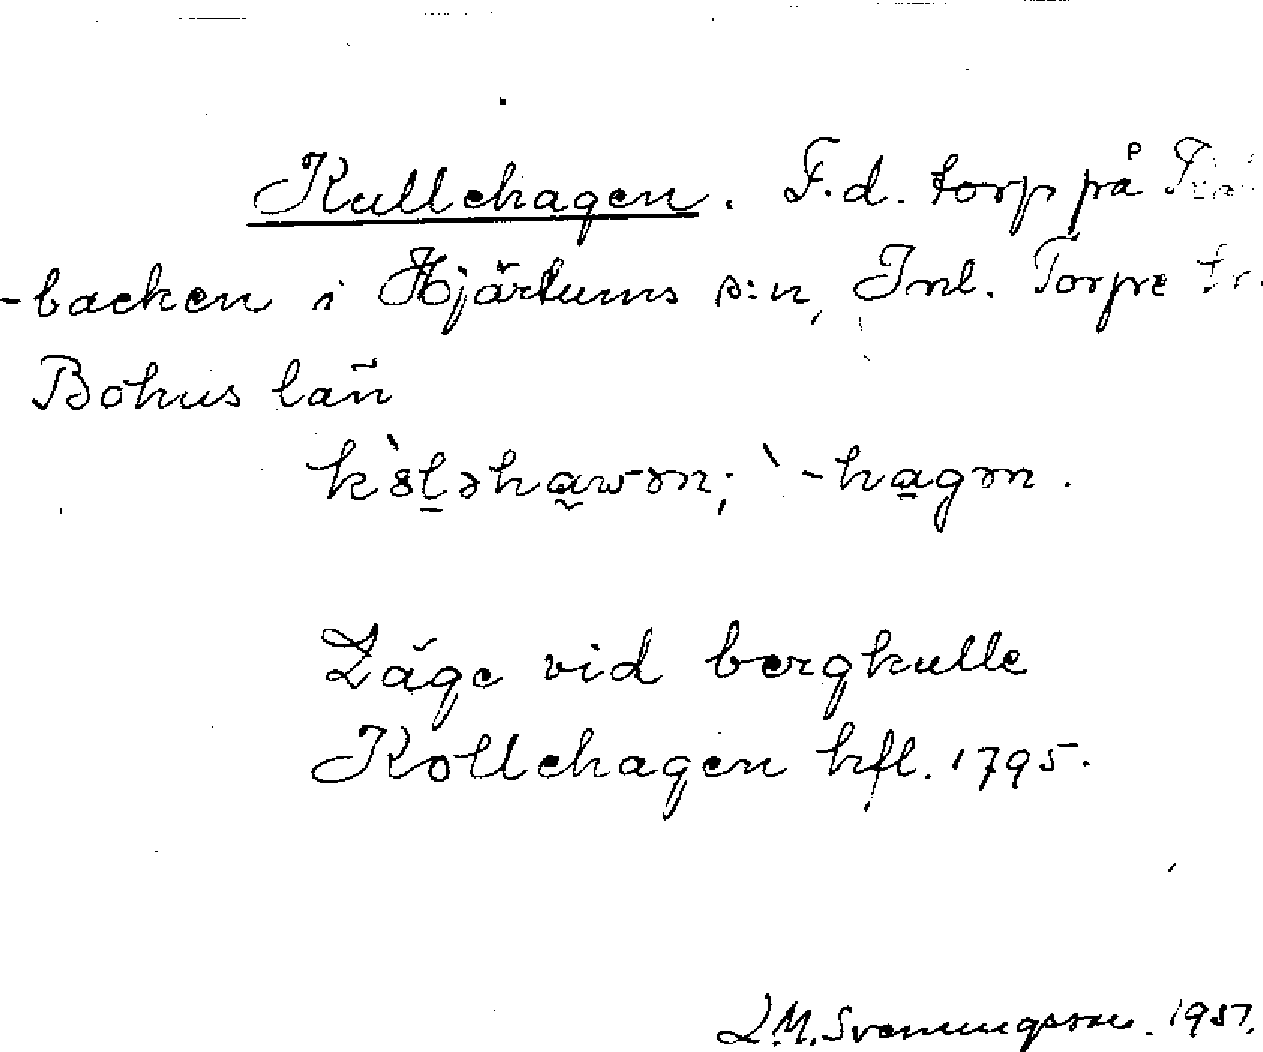 Kullehagen. F.d. torp på
-backen i Hjärtums s:n, Inl. Torpe
Bohus län
Läge vid bergkulle
Kollehagen hfl. 1795.
L.M. Svenungsson. 1957.